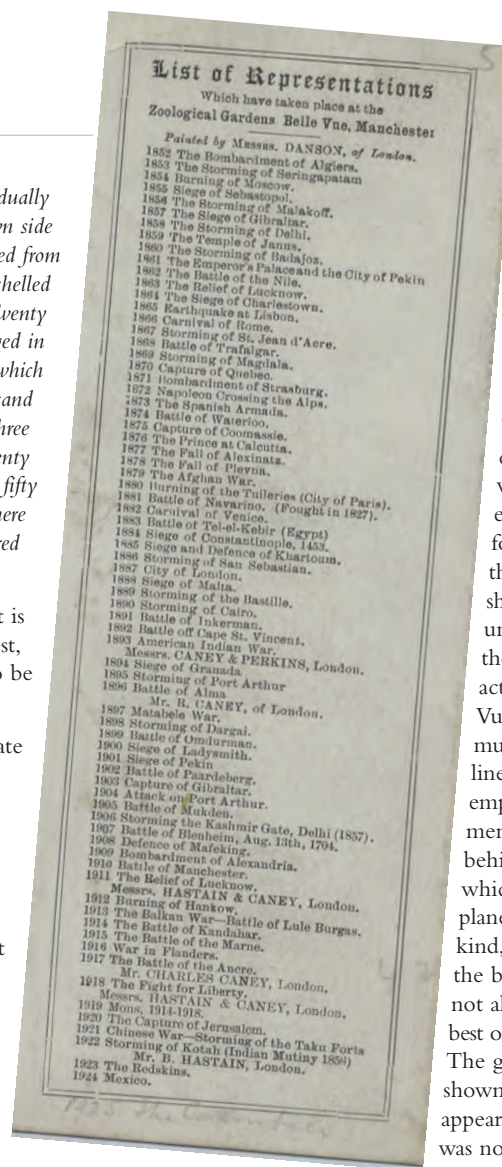 List of Representations
Which have taken place at the
Zoological Gardens Belle Vue, Manchester
Painted by Messrs. DANSON, of London.
1852 The Bombardment of Algiers.
1853 The Storming of Seringapatam
1854 Burning of Moscow.
1855 Siege of Sebastopol.
1856 The Storming of Malakoff.
1857 The Siege of Gibraltar.
1858 The Storming of Delhi.
1859 The Temple of Janus.
1860 The Storming of Badajoz.
1861 The Emperor's Palace and the City of Pekin
1862 The Battle of the Nile.
1863 The Relief of Lucknow.
1864 The Siege of Charlestown.
1865 Earthquake at Lisbon.
1866 Carnival of Rome.
1867 Storming of St. Jean d'Acre.
1868 Battle of Trafalgar.
1869 Storming of Magdala.
1870 Capture of Quebec.
1871 Bombardment of Strasburg.
1872 Napoleon Crossing the Alps.
1873 The Spanish Armada.
1874 Battle of Waterloo.
1875 Capture of Coomassie.
1876 The Prince at Calcutta.
1877 The Fall of Alexinatz.
1878 The Fall of Plevna.
1879 The Afghan War.
1880 Burning of the Tuileries (City of Paris).
1881 Battle of Navarino. (Fought in 1827).
1882 Carnival of Venice.
1883 Battle of Tel-el-Kebir (Egypt)
1884 Siege of Constantinople, 1453.
1885 Siege and Defence of Khartoum.
1886 Storming of San Sebastian.
1887 City of London.
1888 Siege of Malta.
1889 Storming of the Bastille.
1890 Storming of Cairo.
1891 Battle of Inkerman.
1892 Battle off Cape St. Vincent.
1893 American Indian War.
Messrs. CANEY & PERKINS, London.
1894 Siege of Granada
1895 Storming of Port Arthur
1896 Battle of Alma
Mr. R. CANEY, of London.
1897 Matabele War.
1898 Storming of Dargai.
1899 Battle of Omdurman.
1900 Siege of Ladysmith.
1901 Siege of Pekin
1902 Battle of Paardeberg.
1903 Capture of Gibraltar.
1904 Attack on Port Arthur.
1905 Battle of Mukden.
1906 Storming the Kashmir Gate, Delhi (1857).
1907 Battle of Blenheim, Aug. 13th, 1704.
1908 Defence of Mafeking.
1909 Bombardment of Alexandria.
1910 Battle of Manchester.
1911 The Relief of Lucknow.
Messrs. HASTAIN & CANEY, London.
1912 Burning of Hankow.
1913 The Balkan War—Battle of Lule Burgas.
1914 The Battle of Kandahar.
1915 The Battle of the Marne.
1916 War in Flanders.
1917 The Battle of the Ancre.
Mr. CHARLES CANEY, London.
1918 The Fight for Liberty.
Messrs. HASTAIN & CANEY, London.
1919 Mons, 1914-1918.
1920 The Capture of Jerusalem.
1921 Chinese War—Storming of the Taku Forts
1922 Storming of Kotah (Indian Mutiny 1858)
Mr. B. HASTAIN, London.
1923 The Redskins.
1924 Mexico.
1925 The
dually
n side
ed from
helled
wenty
ed in
which
and
hree
enty
fifty
here
red
t is
st,
o be
ate
t
th
sh
un
the
act
Vu
mu
line
emp
men
behi
whic
plane
kind,
the b
not al
best o
The g
shown
appear
was no